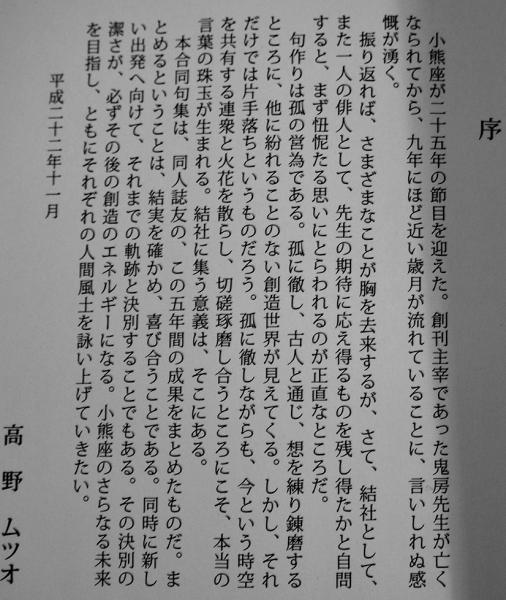 序
小熊座が二十五年の節目を迎えた。創刊主宰であった鬼房先生が亡く
なられてから、九年にほど近い歳月が流れていることに、言いしれぬ感
慨が湧く。
振り返れば、さまざまなことが胸を去来するが、さて、結社として、
また一人の俳人として、先生の期待に応え得るものを残し得たかと自問
すると、まず忸怩たる思いにとらわれるのが正直なところだ。
句作りは孤の営為である。孤に徹し、古人と通じ、想を練り錬磨する
ところに、他に紛れることのない創造世界が見えてくる。しかし、それ
だけでは片手落ちというものだろう。孤に徹しながらも、今という時空
を共有する連衆と火花を散らし、切磋琢磨し合うところにこそ、本当の
言葉の珠玉が生まれる。結社に集う意義は、そこにある。
本合同句集は、同人誌友の、この五年間の成果をまとめたものだ。ま
とめるということは、結実を確かめ、喜び合うことである。同時に新し
い出発へ向けて、それまでの軌跡と決別することでもある。その決別の
潔さが、必ずその後の創造のエネルギーになる。小熊座のさらなる未来
を目指し、ともにそれぞれの人間風土を詠い上げていきたい。
平成二十二年十一月
高野ムツオ